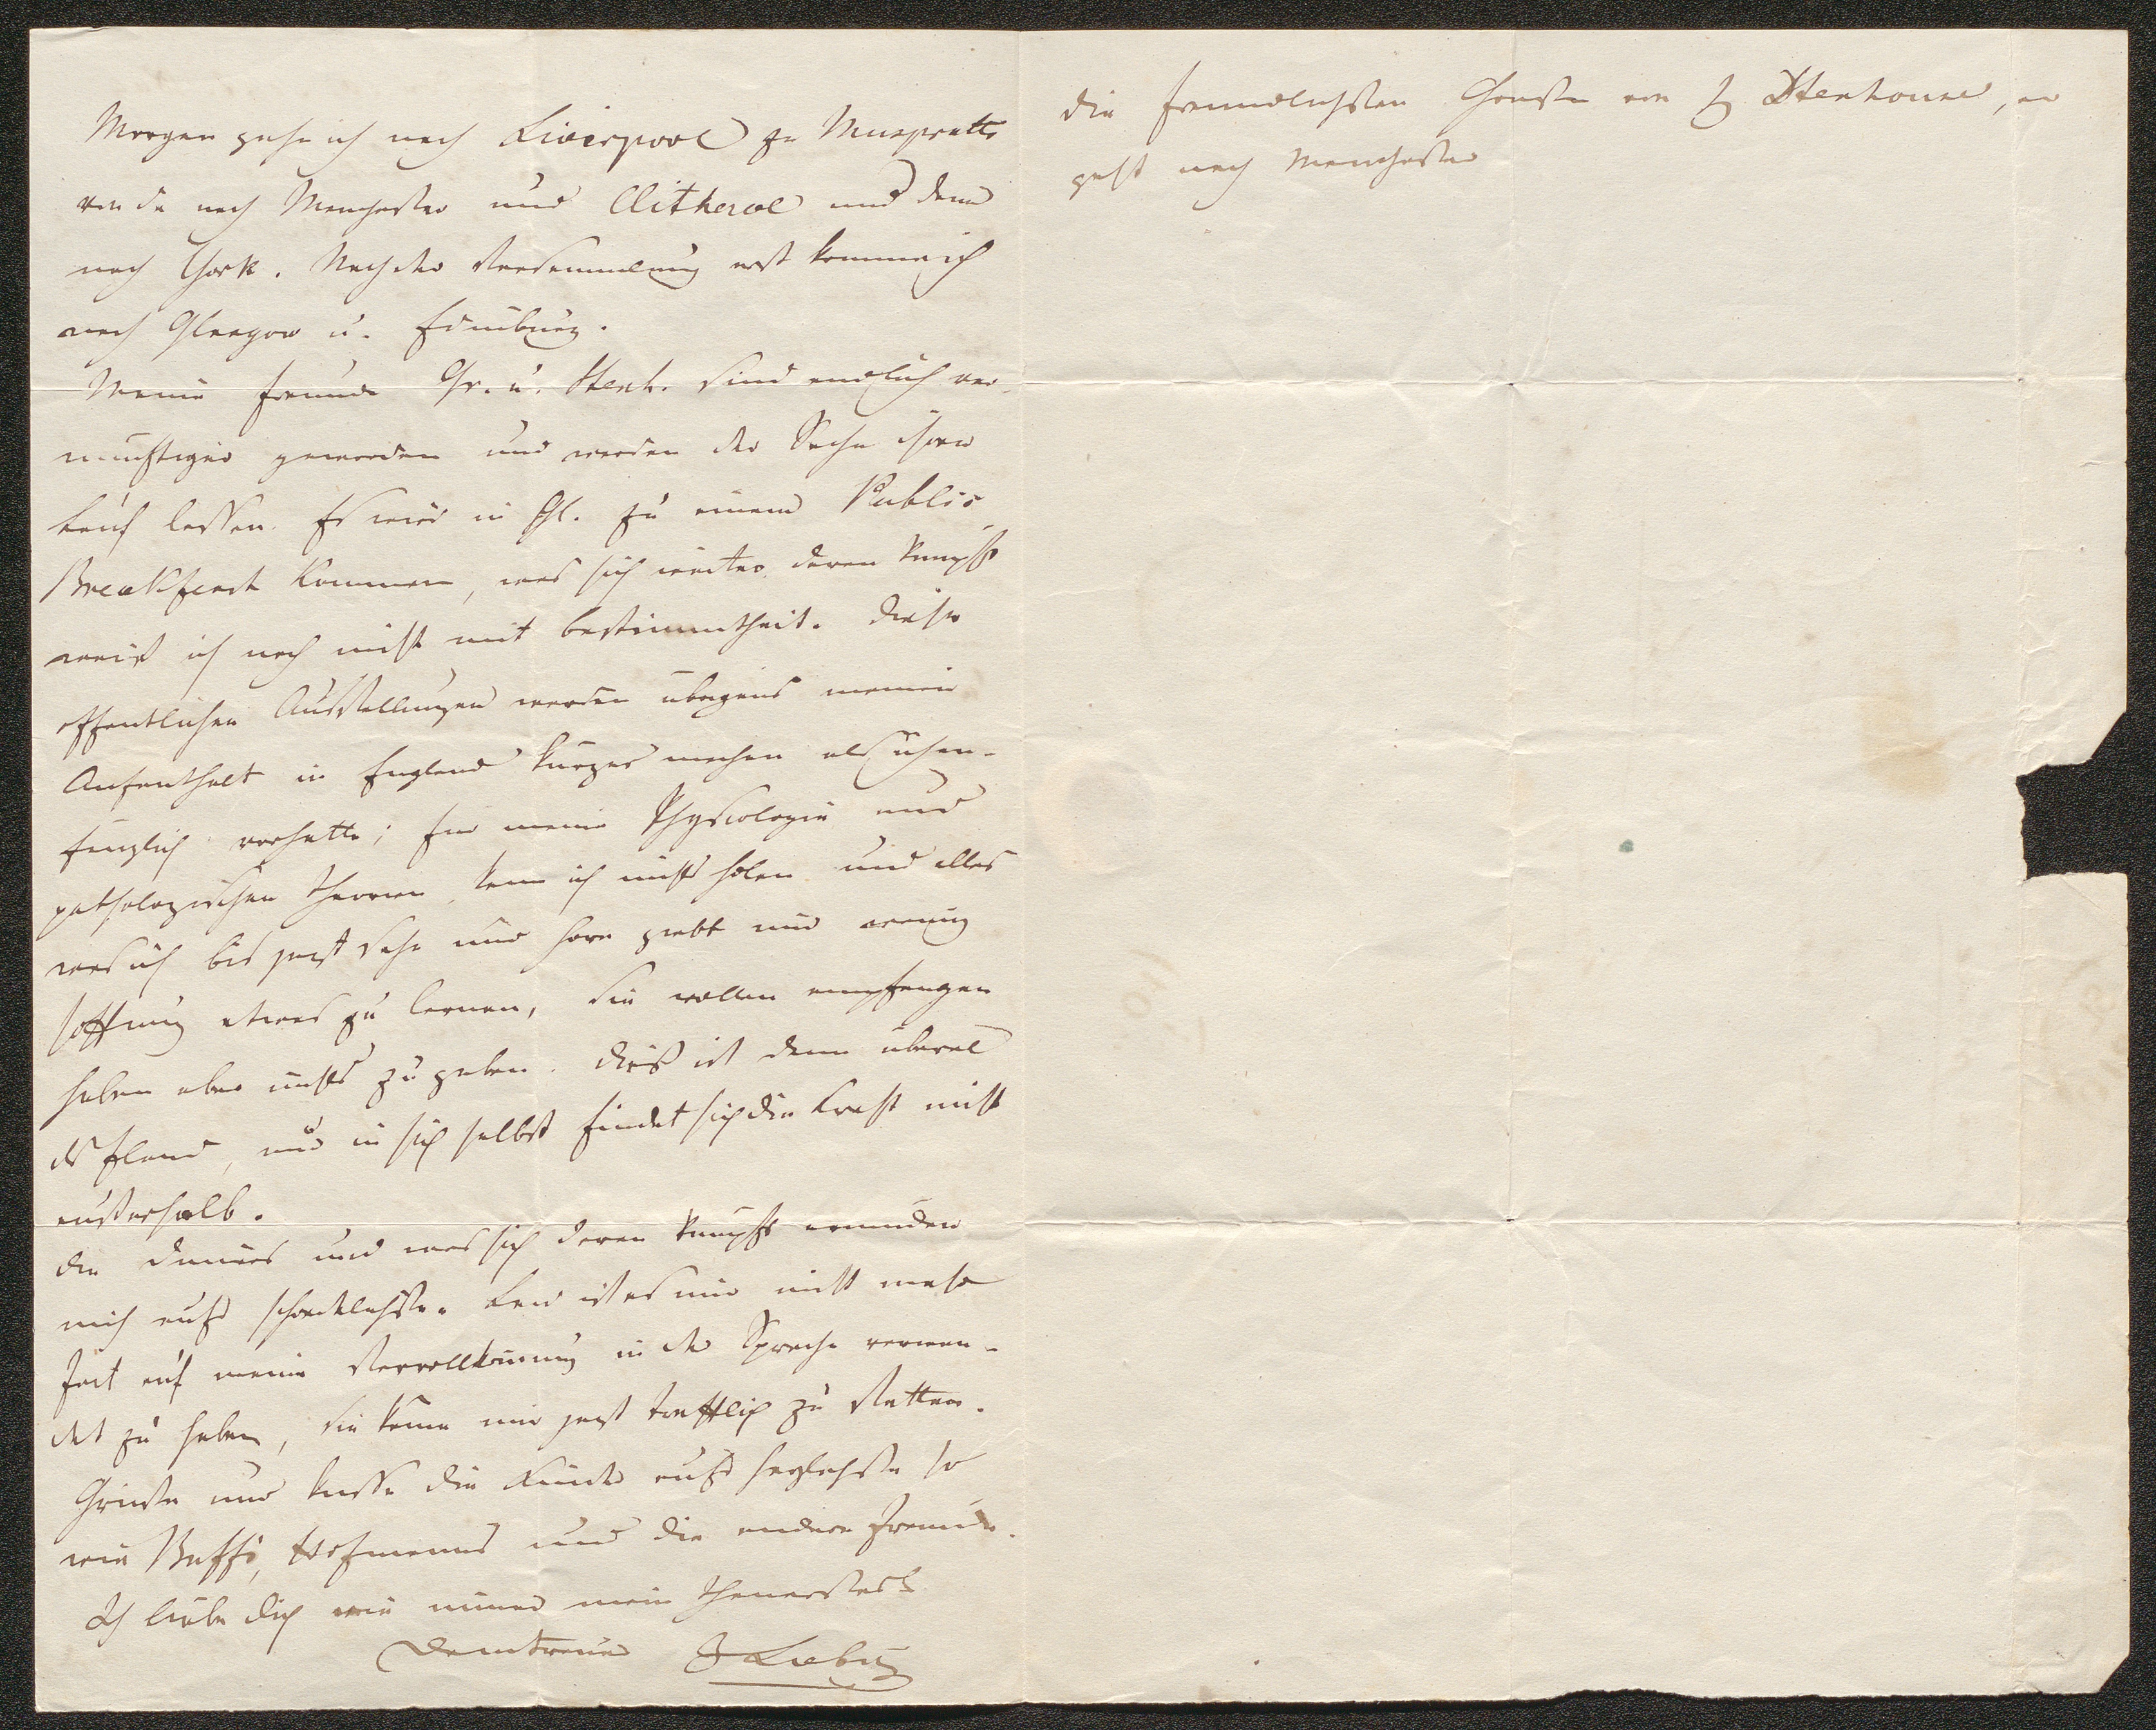 Morgen gehe ich nach Liverpool zu Muspratts
von da nach Manchester und Clitheroe und dann
nach York. Nach der Versammlung erst komme ich
nach Glasgow u. Edinburg.
Meine Freunde Gr. u. Stenh. sind endlich ver-
nünftiger geworden und werden der Sache ihren
Lauf lassen. Es wird in Gl. zu einem Public
Breakfast kommen, was sich weiter daran knüpft
weiß ich noch nicht mit Bestimmtheit. Diese
öffentlichen Ausstellungen werden übrigens meinen
Aufenthalt in England kürzer machen als ich an-
fänglich vorhatte; für meine Physiologie und
pathologischen Theorien kann ich nichts holen und alles
was ich bis jetzt sehe und höre giebt mir wenig
Hoffnung etwas zu lernen, sie wollen empfangen
haben aber nichts zu geben. Dieß ist denn überal
das Elend, nur in sich selbst findet sich die Kraft nicht
außerhalb.
Die Diners und was sich daran knüpft ermüden
mich aufs schrecklichste. Leid ist es mir nicht mehr
Zeit auf meine Vervollkomung in der Sprache verwen-
det zu haben, sie käme mir jetzt trefflich zu statten.
Grüße und küsse die Kinder aufs herzlichste so
wie Buffs, Hofmanns und die andern Freunde.
Ich liebe dich wie immer mein theuerstes
Dein treuer J Liebig
die freundlichsten Grüße von H Stenhouse, er
geht nach Manchester